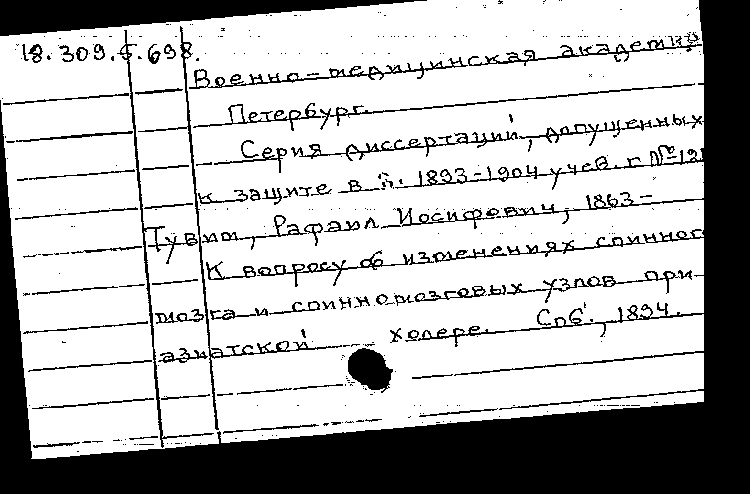 18.309.5.698.
Военно-медицинская академия
Петербург.
Серия диссертаций, допущенных
к защите в п. 1893-1904 учеб. г №121
Тувим, Рафаил Иосифович, 1863-
К вопросу об изменениях спинног
мозга и спинномозговых узлов при
азиатской холере. Спб., 1894.